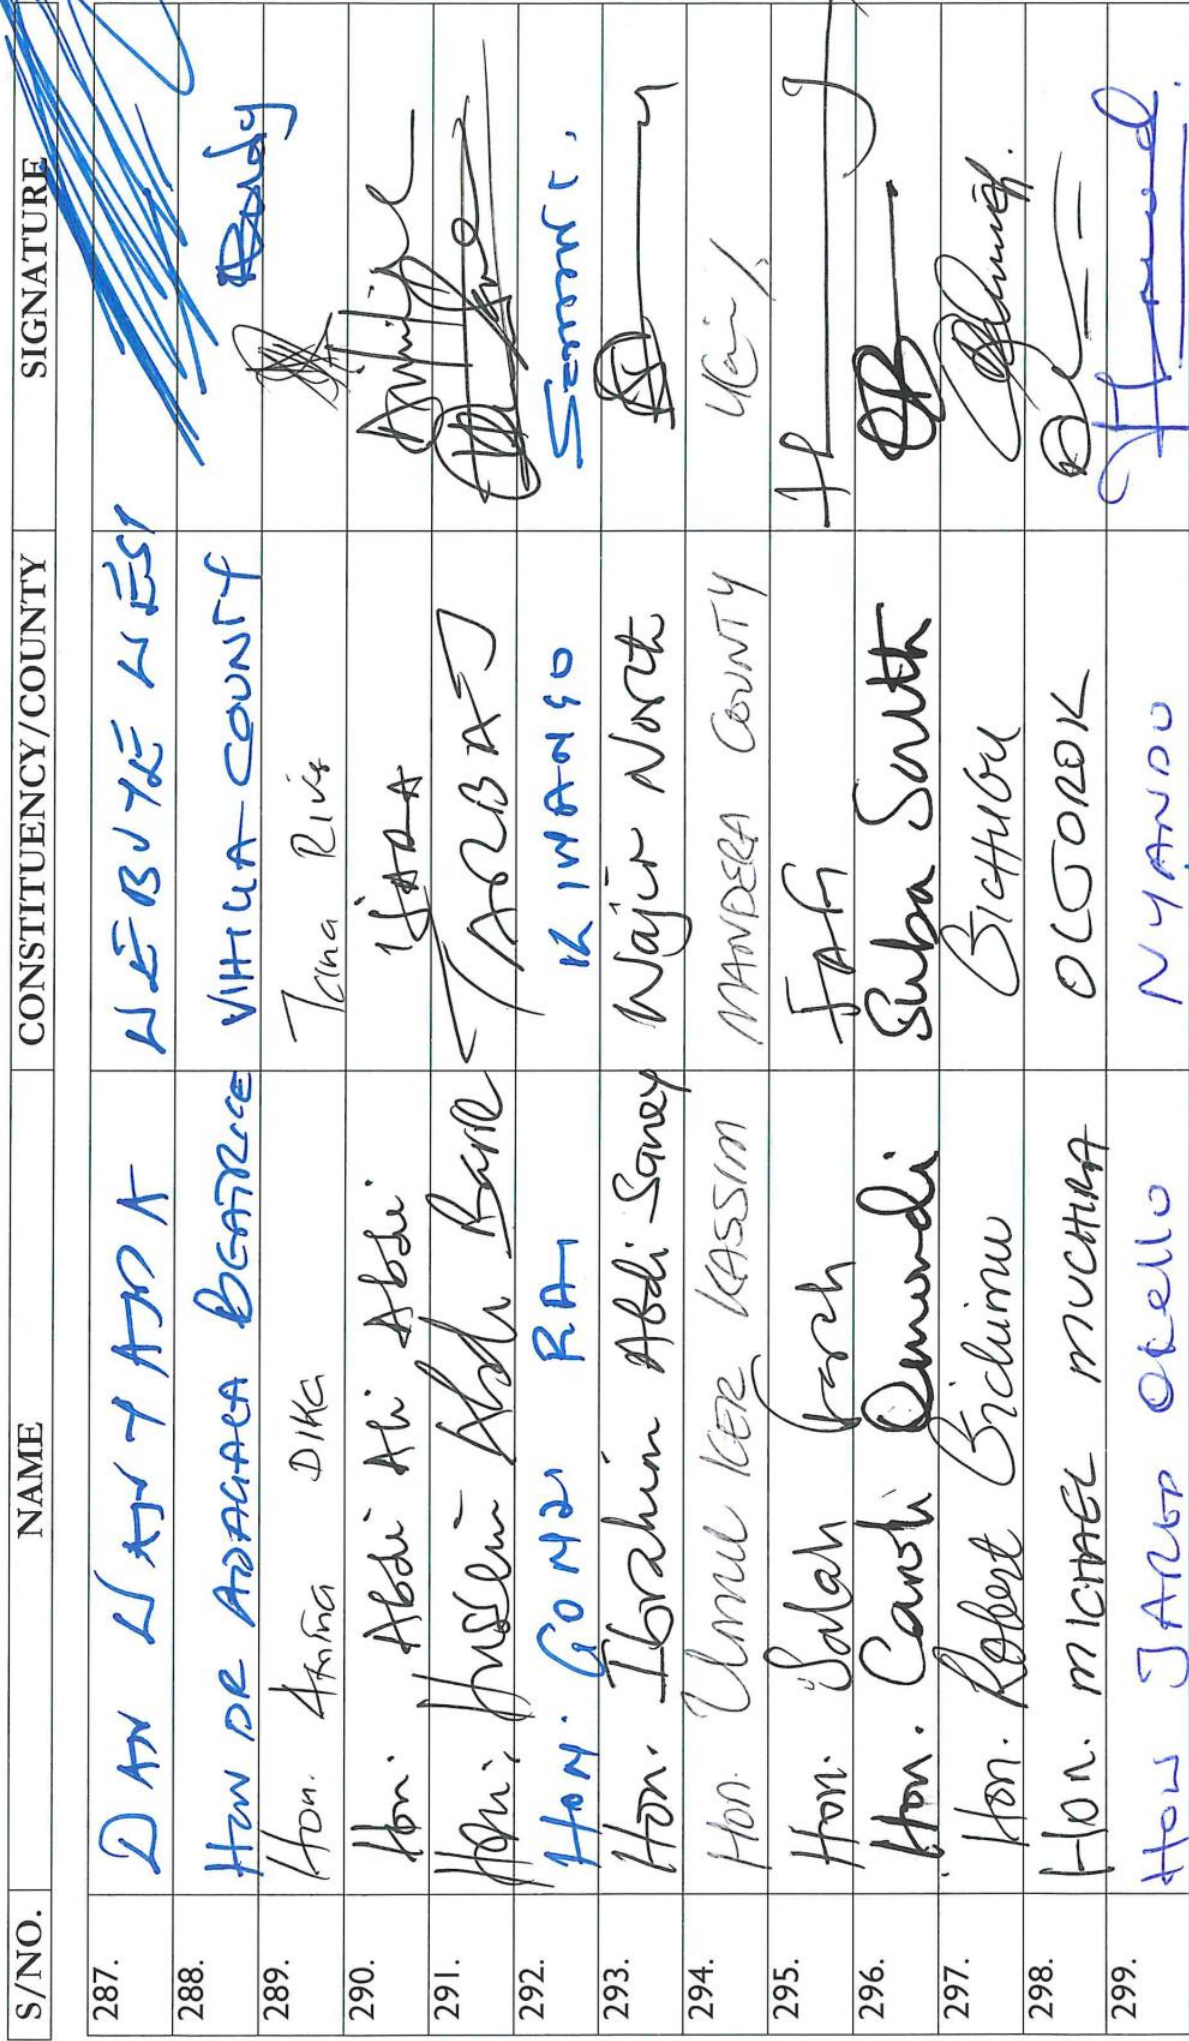 S/NO. NAME CONSTITUENCY/COUNTY SIGNATURE
287. DAN WANYAMA WEBUYE WEST
288. HON DR ADAGALA BEATRICE VIHIGA COUNTY
289. Hon. Amina DIKA Tana River
290. Hon. Abdi Ali Abdi IJARA
291. Hon. Hussein Abdi Barre TARBAJ
292. HON. KIMANGO
293. Hon. Ibrahim Abdi Saney Wajir North
294. Hon. Umul KER KASSIM MANDERA COUNTY
295. Hon. Salah FAFI
296. Hon. Caroli Omondi Suba South
297. Hon. Robert
298. Hon. MICHAEL MUCHIRA OLJOROK
299. HON JARED OKELLO NYANDO